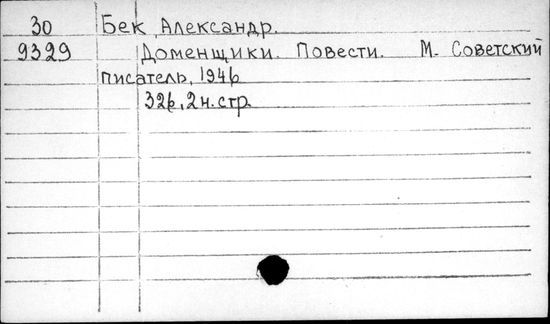 30 Бек, Александр.
9329 Доменщики. Повести. М. Советский
писатель, 1946
326, 2 н. стр.